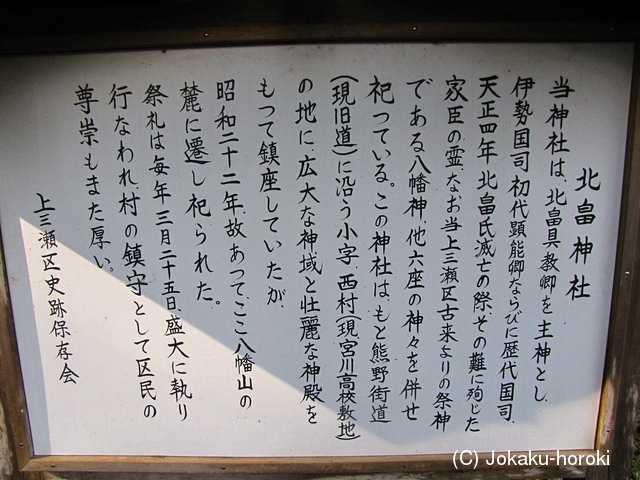 北畠神社
当神社は、北畠具教卿を主神とし、
伊勢国司初代顕能卿ならびに歴代国司、
天正四年北畠氏滅亡の際、その難に殉じた
家臣の霊、なお当上三瀬区古来よりの祭神
である八幡神、他六座の神々を併せ
祀っている。この神社は、もと熊野街道
(現旧道)に沿う小字西村(現宮川高校敷地)
の地に、広大な神域と壮麗な神殿を
もって鎮座していたが、
昭和二十二年、故あって、ここ八幡山の
麓に遷し祀られた。
祭礼は毎年三月二十五日、盛大に執り
行なわれ、村の鎮守として区民の
尊崇もまた厚い。
上三瀬区史跡保存会
(C) Jokaku-horoki